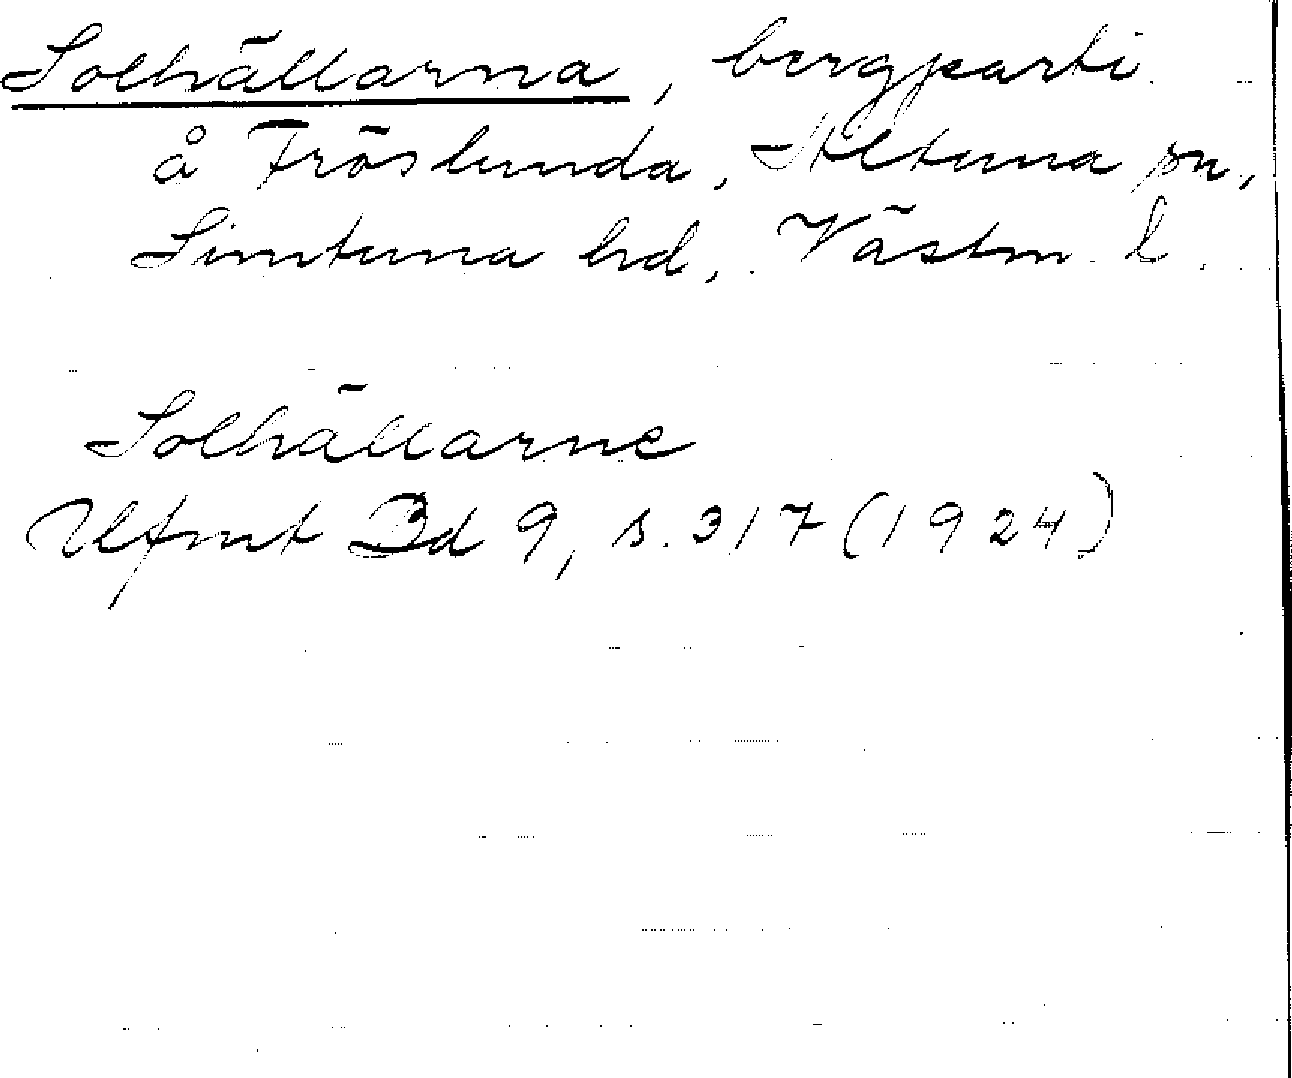 Solhällarna, bergparti
å Fröslunda, Altuna sn,
Simtuna hd, Västm. l.
Solhällarne
Ufmt Bd 9, s. 317 (1924)